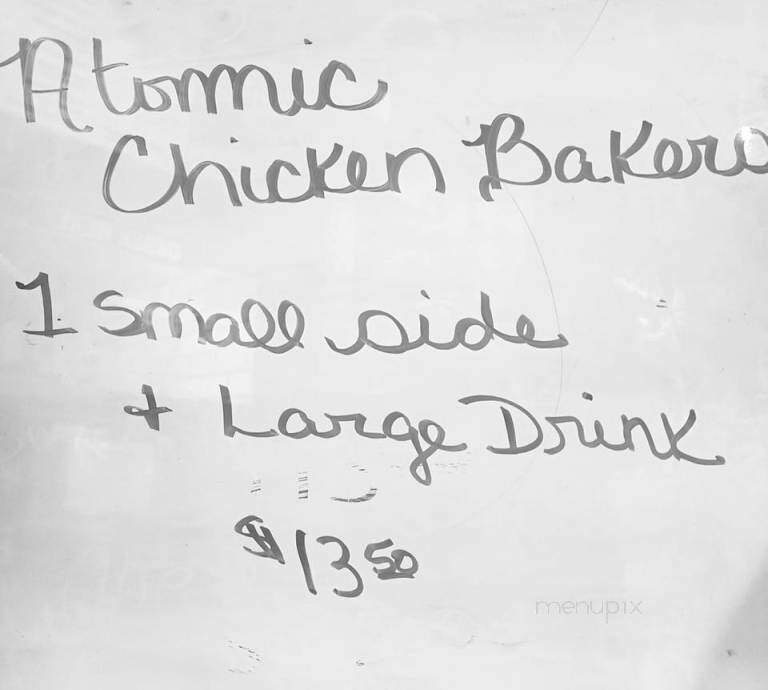 Atomic
Chicken Bakero
1 small side
+ Large Drink
$13.50
menupix